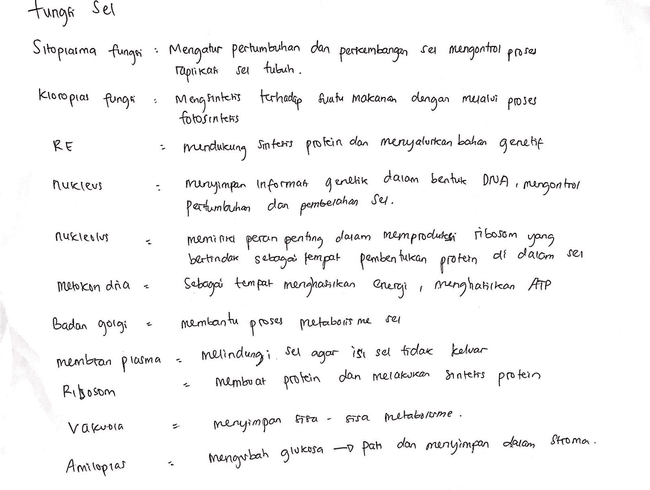 Fungsi Sel
Sitoplasma fungsi : Mengatur pertumbuhan dan perkembangan sel mengontrol proses
raplikasi sel tubuh.
Kloroplas fungsi : Mengsintesis terhadap suatu makanan dengan melalui proses
fotosintesis
RE : mendukung sintesis protein dan menyalurkan bahan genetif
nukleus : menyimpan informasi genetik dalam bentuk DNA, mengontrol
pertumbuhan dan pembelahan sel.
nukleolus = memiliki peran penting dalam memproduksi ribosom yang
bertindak sebagai tempat pembentukan protein di dalam sel
metokondria = Sebagai tempat menghasilkan energi, menghasilkan ATP
Badan golgi = membantu proses metabolisme sel
membran plasma = melindungi sel agar isi sel tidak keluar
Ribosom = membuat protein dan melakukan sintesis protein
Vakuola = menyimpan sisa - sisa metabolisme.
Amiloplas = mengubah glukosa → pati dan menyimpan dalam stroma.